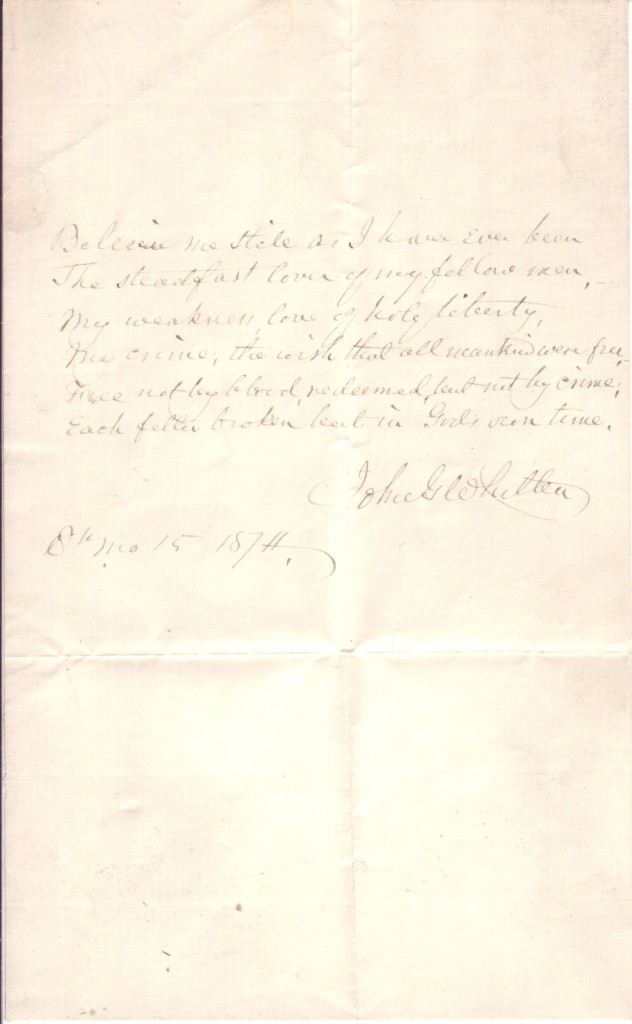 Believe me still as I have ever been
The steadfast lover of my fellow men,
My weakness, love of holy liberty,
My crime, the wish that all mankind were free
Free not by blood, redeemed, but not by crime,
Each fetter broken but in God's own time.
John G Whittier
8th mo 15 1874.